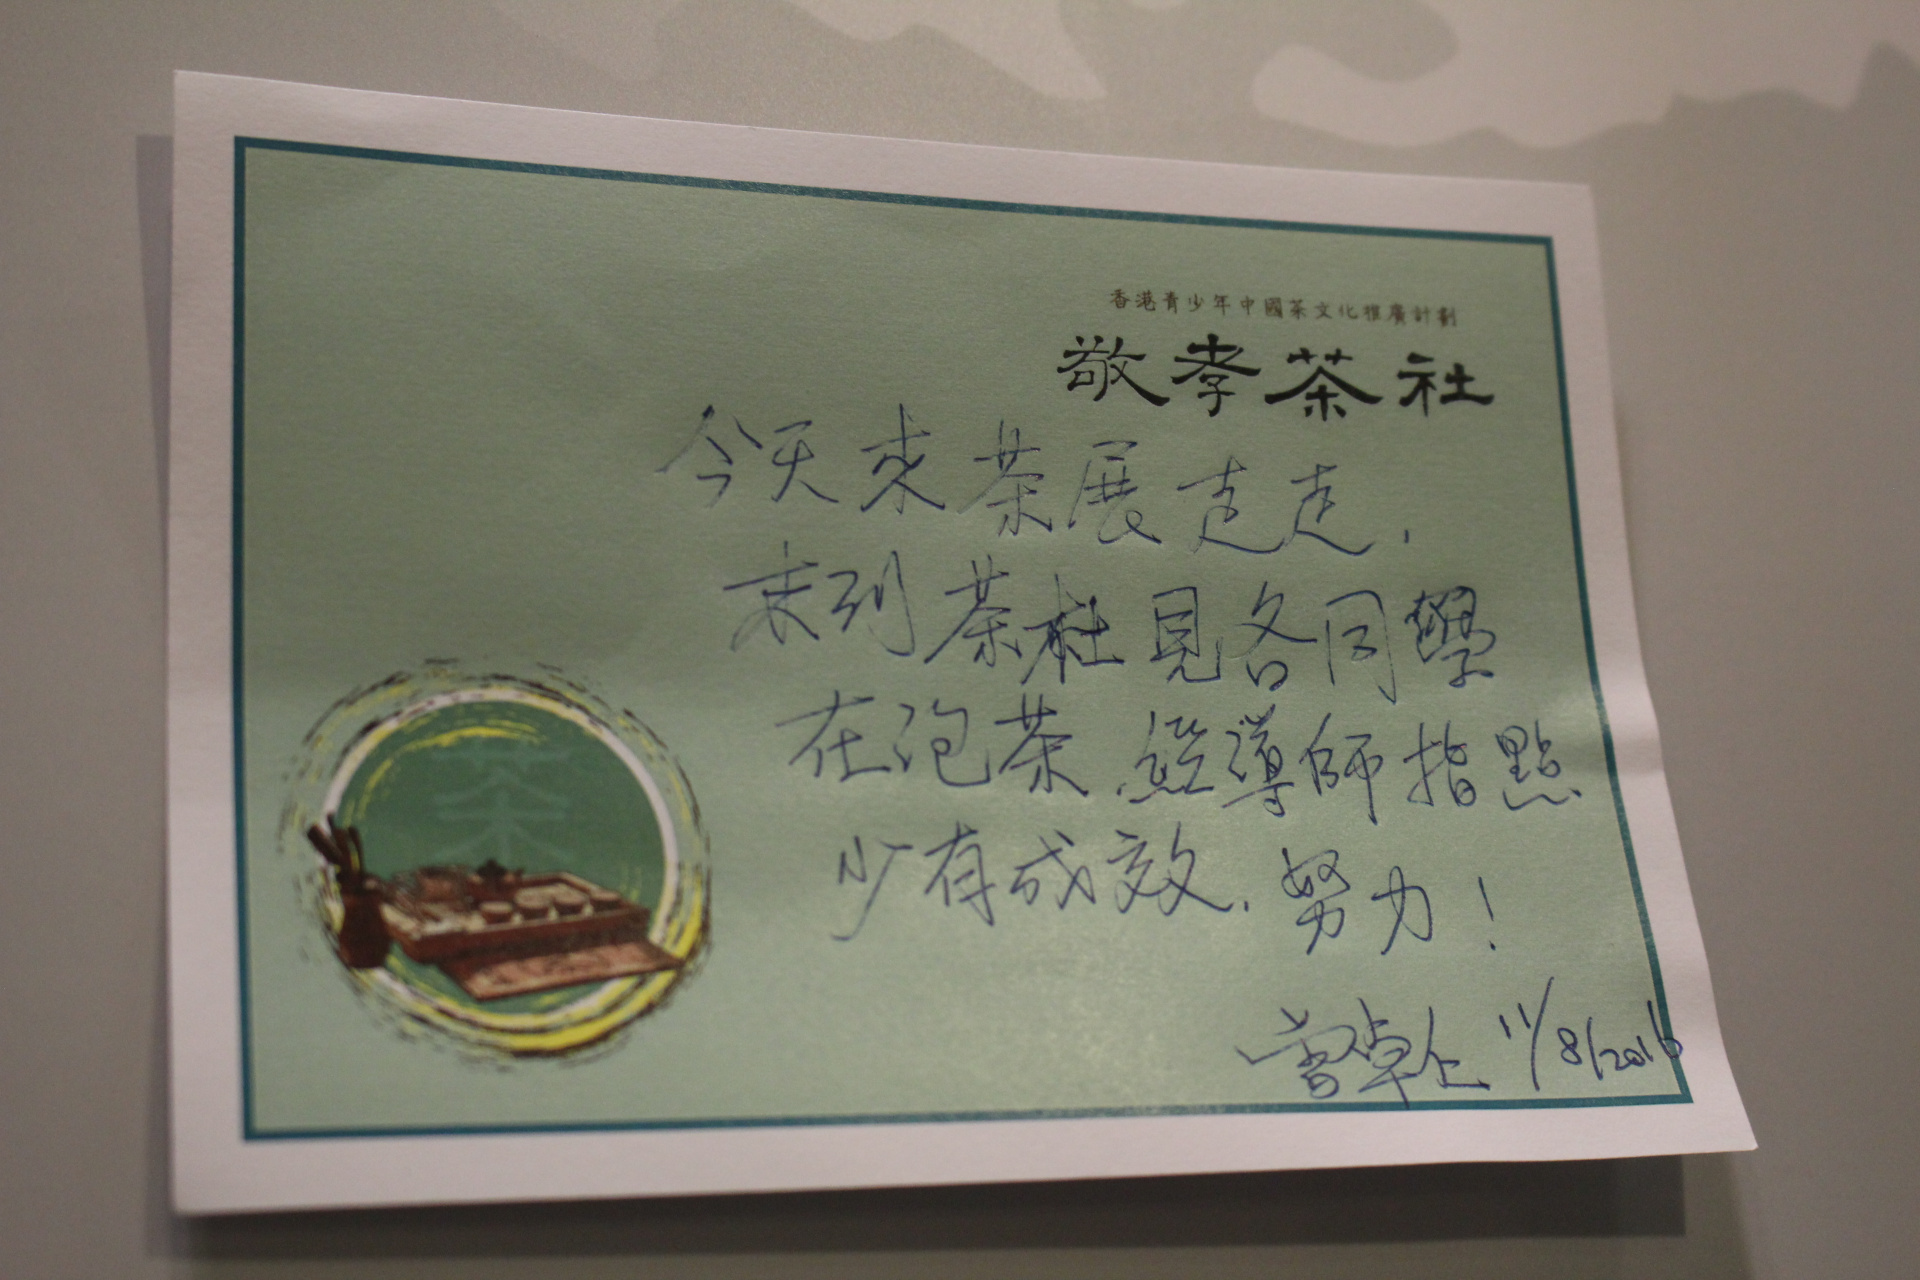 香港青少年中國茶文化推廣計劃
敬孝茶社
今天來茶展走走,
來到茶社見各同學
在泡茶.經導師指點
少有成效.努力!
曾卓仝 11/8/2016
茶